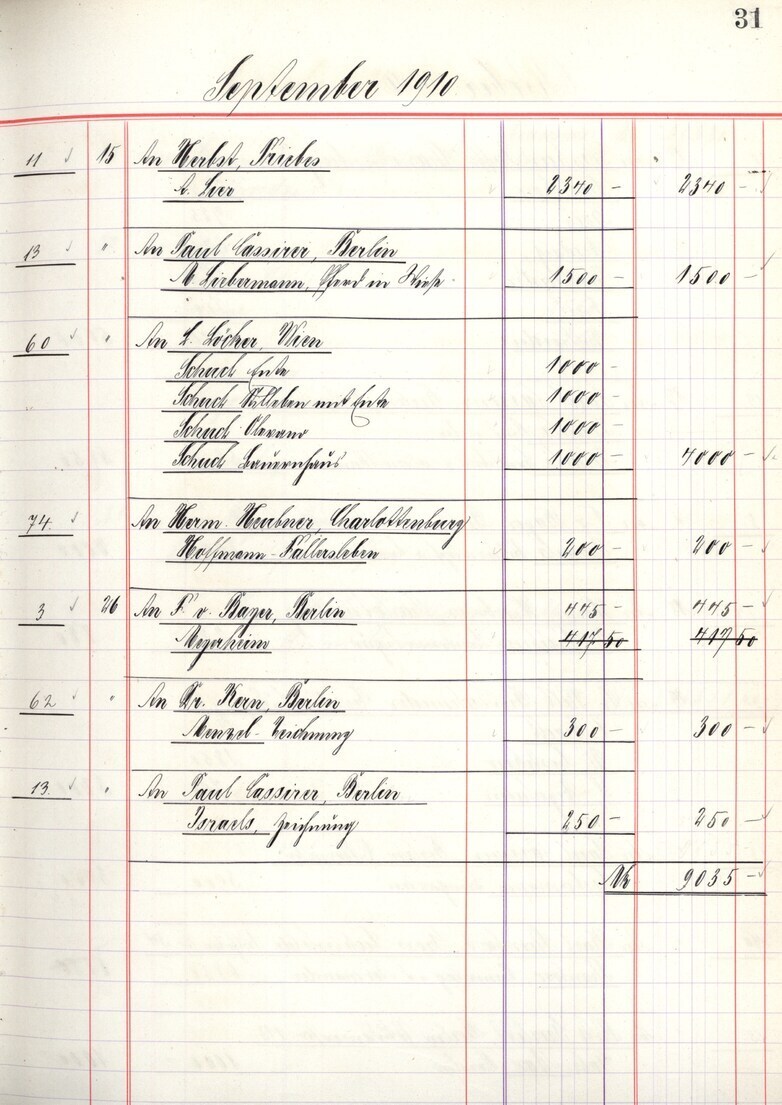 31
September 1910
11 15 An Herbst, Friebes
A. Lier 2340 — 2340 —
13 " An Paul Cassirer, Berlin
M. Liebermann, Pferd in Wiese 1500 — 1500 —
60 " An L. Löcker, Wien
Schuch Ente 1000 —
Schuch Stilleben mit Ente 1000 —
Schuch Olevano 1000 —
Schuch Bauernhaus 1000 — 4000 —
74. " An Herm. Heubner, Charlottenburg
Hoffmann-Fallersleben 200 — 200 —
3 26 An F. v. Bayer, Berlin 445 — 445 —
Meyerheim 417 50 417 50
62 " An Dr. Kern, Berlin
Menzel-Zeichnung 300 — 300 —
13. " An Paul Cassirer, Berlin
Israels, Zeichnung 250 — 250 —
Mk 9035 —